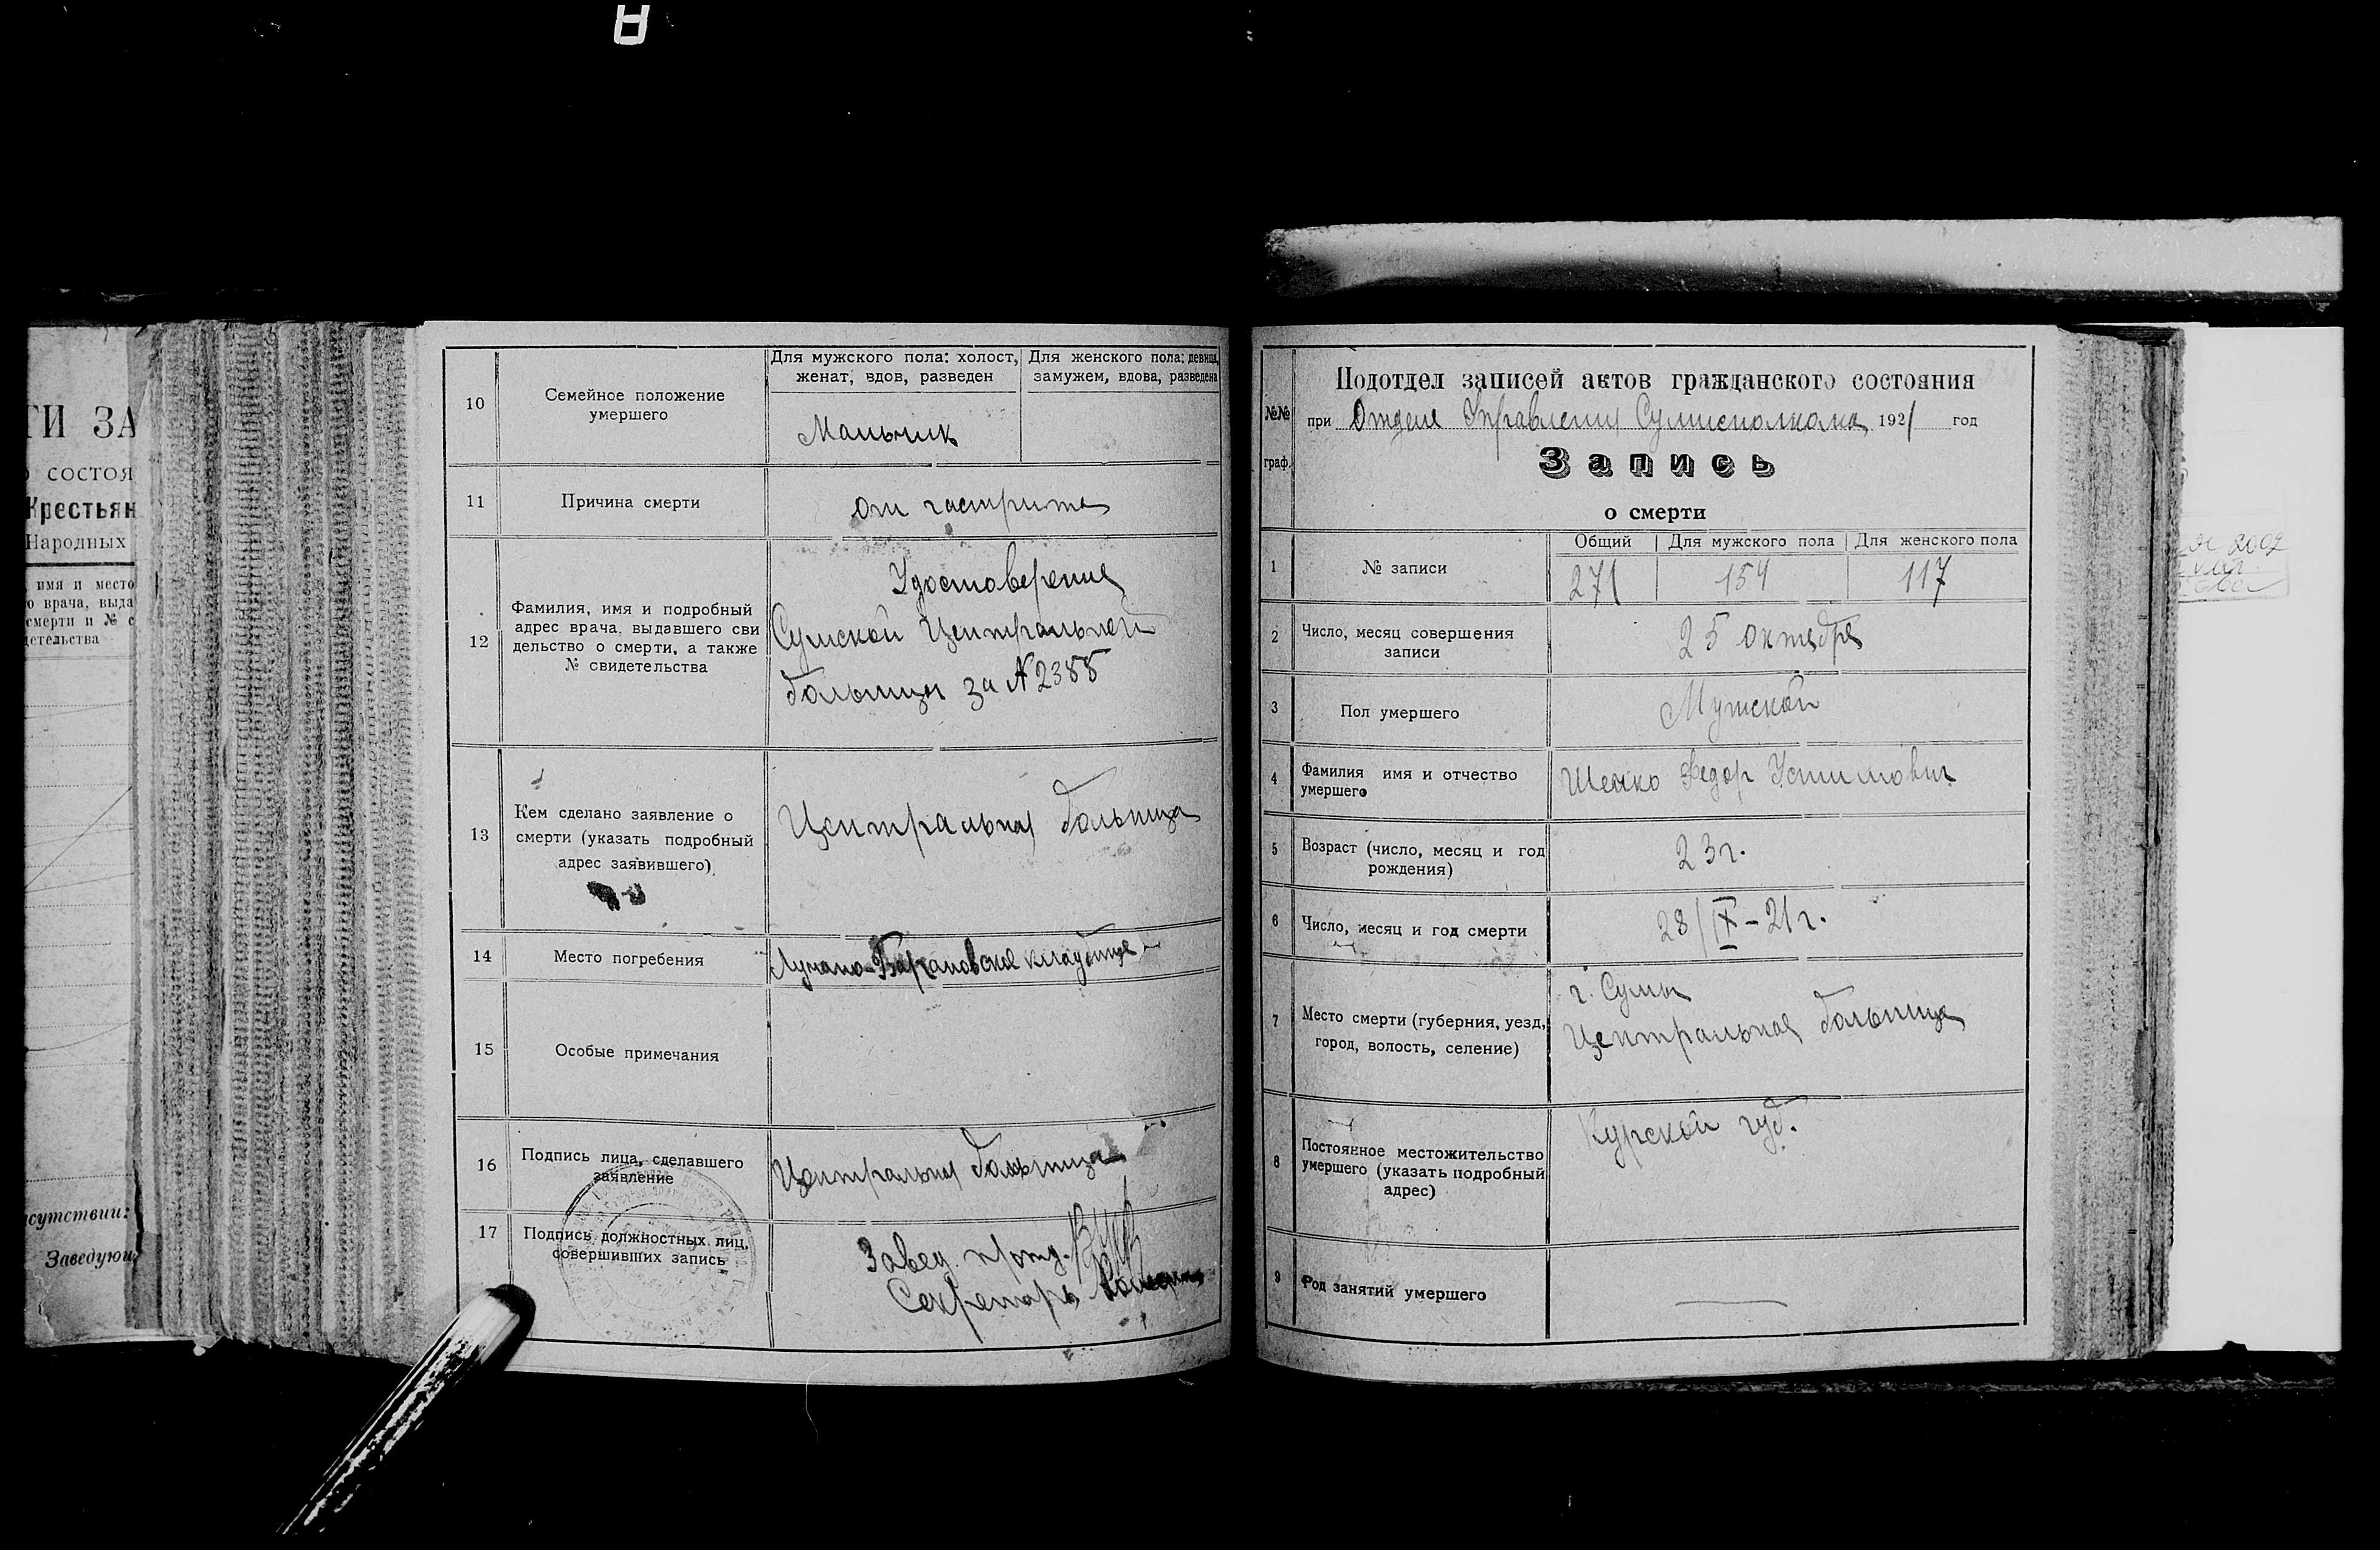 ТИ ЗА
СОСТОЯ
Крестьян
Народных
имя и место
о врача, выда
смерти и № с
детельства
сутствии:
Заведующ
10
Семейное положение
умершего
Для мужского пола: холост,
женат, вдов, разведен
Для женского пола: девица,
замужем, вдова, разведена
Мальчик
11
Причина смерти
от гастрита
12
Фамилия, имя и подробный
адрес врача, выдавшего сви
дельство о смерти, а также
№ свидетельства
Удостоверение
Сумской Центральной
больницы за № 2388
13
Кем сделано заявление о
смерти (указать подробный
адрес заявившего)
Центральная больница
14
Место погребения
Лучано-Барановское кладбище
15
Особые примечания
16
Подпись лица, сделавшего
заявление
Центральная больница
17
Подпись должностных лиц,
совершивших запись
Завед.
Секретарь
№№
граф.
Подотдел записей актов гражданского состояния
при Отделе Управления Сумисполкома 1921 год
Запись
о смерти
1
№ записи
Общий
Для мужского пола
Для женского пола
271
154
117
2
Число, месяц совершения
записи
25 октября
3
Пол умершего
Мужской
4
Фамилия имя и отчество
умершего
Шейко Федор Устимович
5
Возраст (число, месяц и год
рождения)
23 г.
6
Число, месяц и год смерти
28/IX-21 г.
7
Место смерти (губерния, уезд,
город, волость, селение)
г. Сумы
Центральная больница
8
Постоянное местожительство
умершего (указать подробный
адрес)
Курской губ.
9
Род занятий умершего
2002